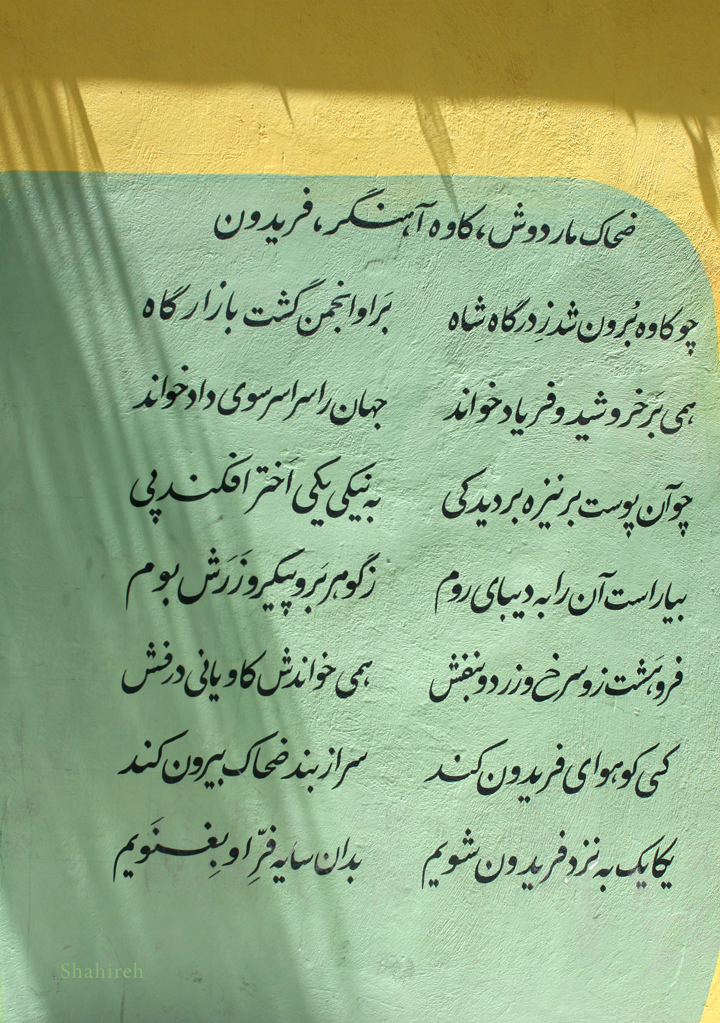 ضحاک ماردوش، کاوه آهنگر، فریدون
چو کاوه بُرون شد زِ درگاه شاه بَر او انجمن گشت بازارگاه
همی بَرخروشید و فریاد خواند جهان را سراسر سوی داد خواند
چو آن پوست بر نیزه بر دید کی به نیکی یکی اَختر افکند پی
بیاراست آن را به دیبای روم ز گوهر بَر و پیکر و زَرَش بوم
فروهَشت زو سرخ و زرد و بنفش همی خواندش کاویانی درفش
کسی کو هوای فریدون کند سر از بند ضحاک بیرون کند
یکایک به نزد فریدون شویم بدان سایه فَرِّ او بِغنَویم
Shahireh